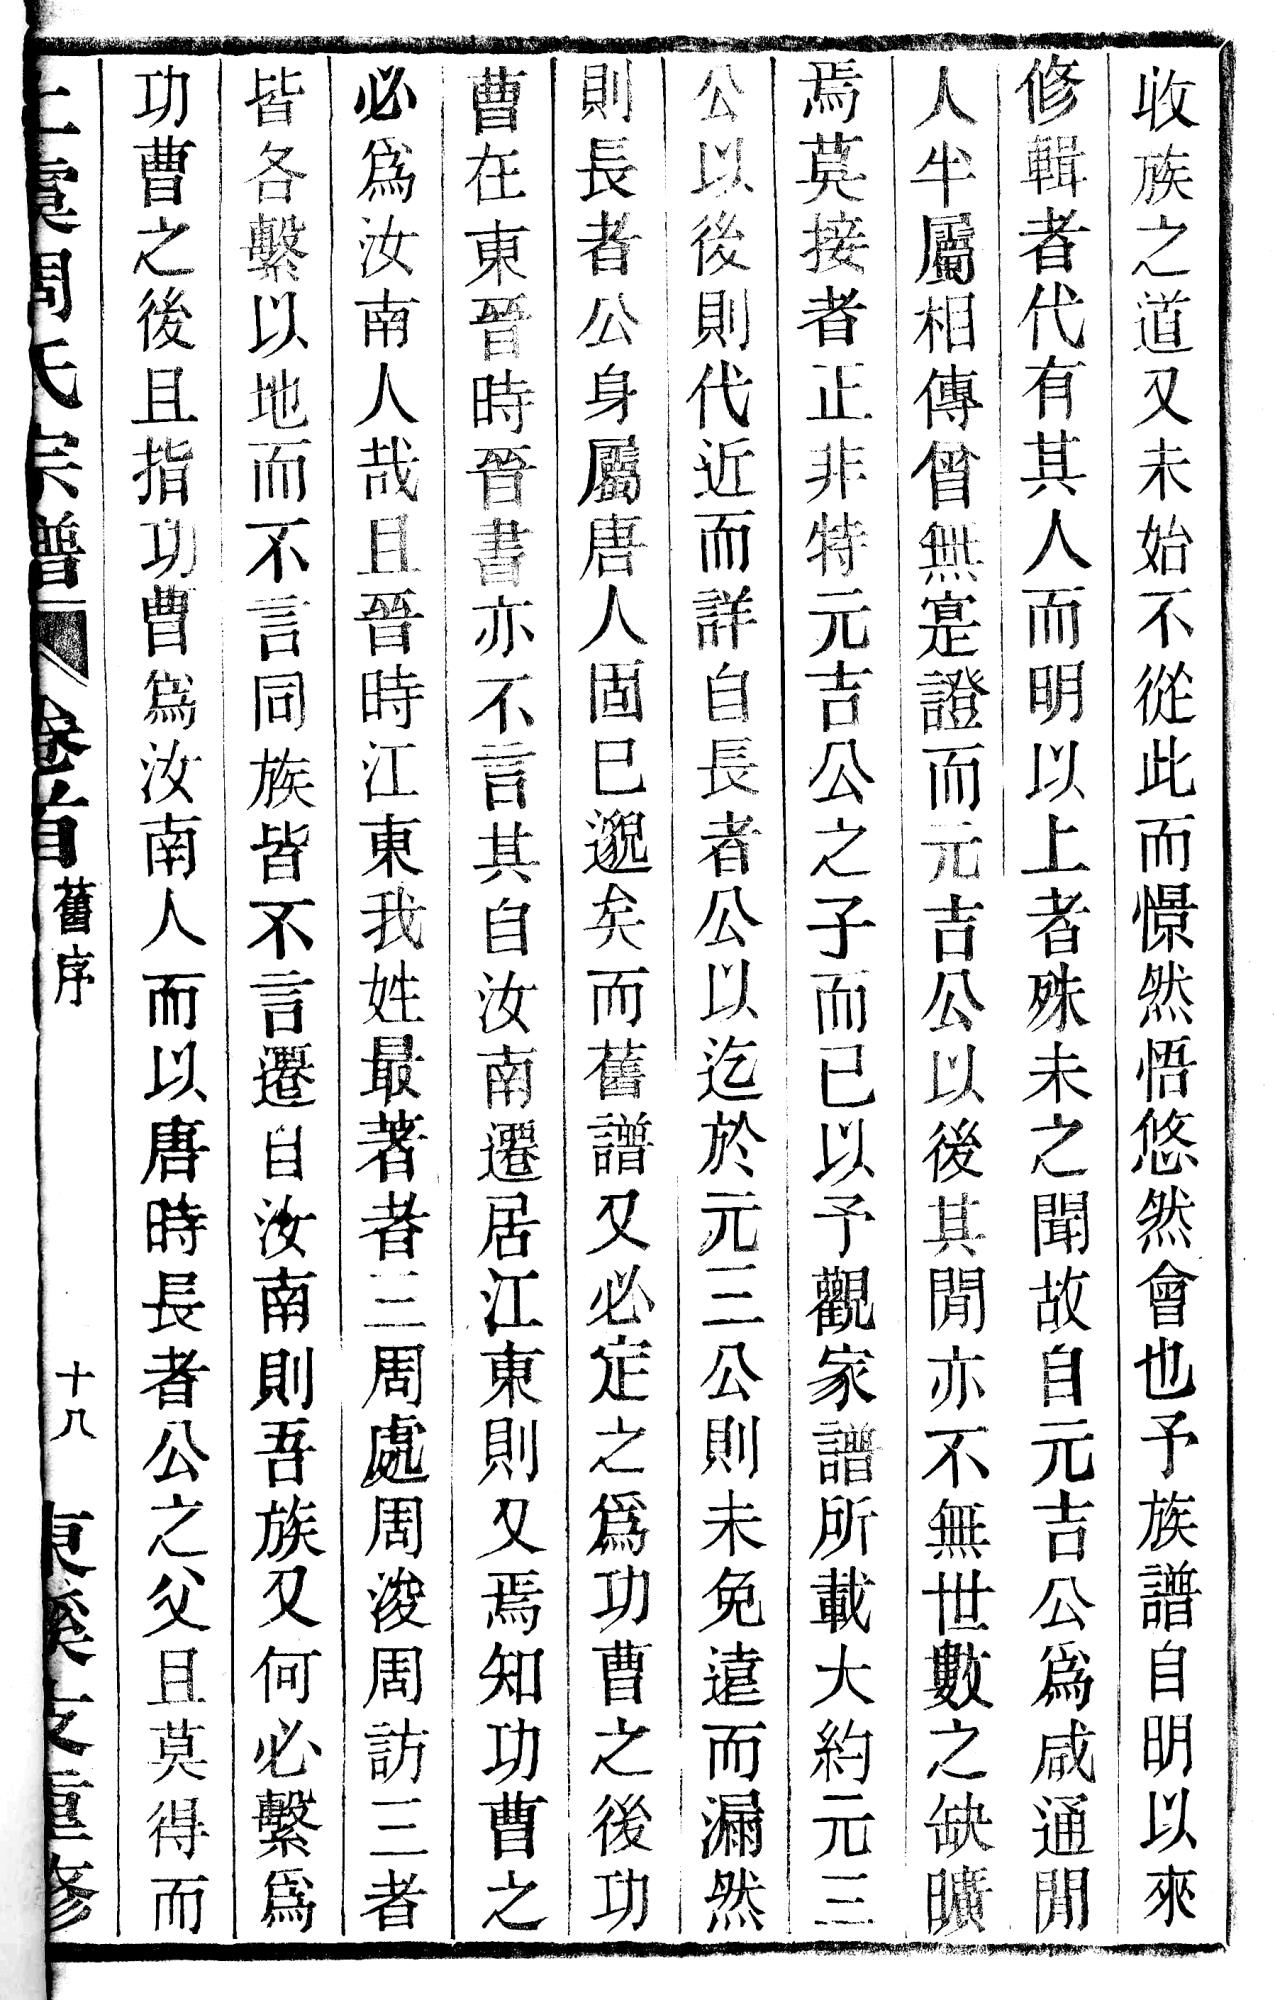 收族之道又未始不從此而憬然悟悠然會也予族譜自明以來
修輯者代有其人而明以上者殊未之聞故自元吉公為咸通閒
人半屬相傳曾無寔證而元吉公以後其閒亦不無世數之缺曠
焉莫接者正非特元吉公之子而已以予觀家譜所載大約元三
公以後則代近而詳自長者公以迄於元三公則未免遠而漏然
則長者公身屬唐人固已邈矣而舊譜又必定之爲功曹之後功
曹在東晉時晉書亦不言其自汝南遷居江東則又焉知功曹之
必爲汝南人哉且晉時江東我姓最著者三周處周浚周訪三者
皆各繫以地而不言同族皆不言遷自汝南則吾族又何必繫爲
功曹之後且指功曹爲汝南人而以唐時長者公之父且莫得而
上虞周氏宗譜 卷首 舊序 十八 東溪支重修